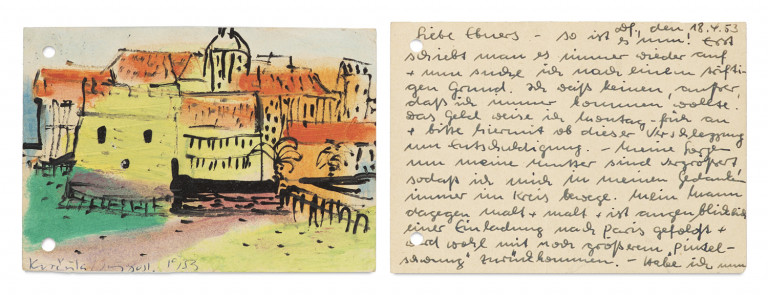 Korčula Jugosl. 1953
Df, den 18.4.53
Liebe Ebners – so ist es nun! Erst
schiebt man es immer wieder auf
+ nun suche ich nach einem triftigen
gen Grund. Ich weiß keinen, außer,
daß ich immer kommen wollte.
Das Geld weise ich Montag-früh an
+ bitte hiermit ob dieser Verschleppung
um Entschuldigung. – Meine Sorgen
um meine Mutter sind vergrößert
sodaß ich mich in meinen Gedanken
immer im Kreis bewege. Mein Mann
dagegen malt + malt + ist augenblicklich
einer Einladung nach Paris gefolgt +
wird wohl mit noch größerem „Pinsel-
schwung" zurückkommen. – Habe ich nun